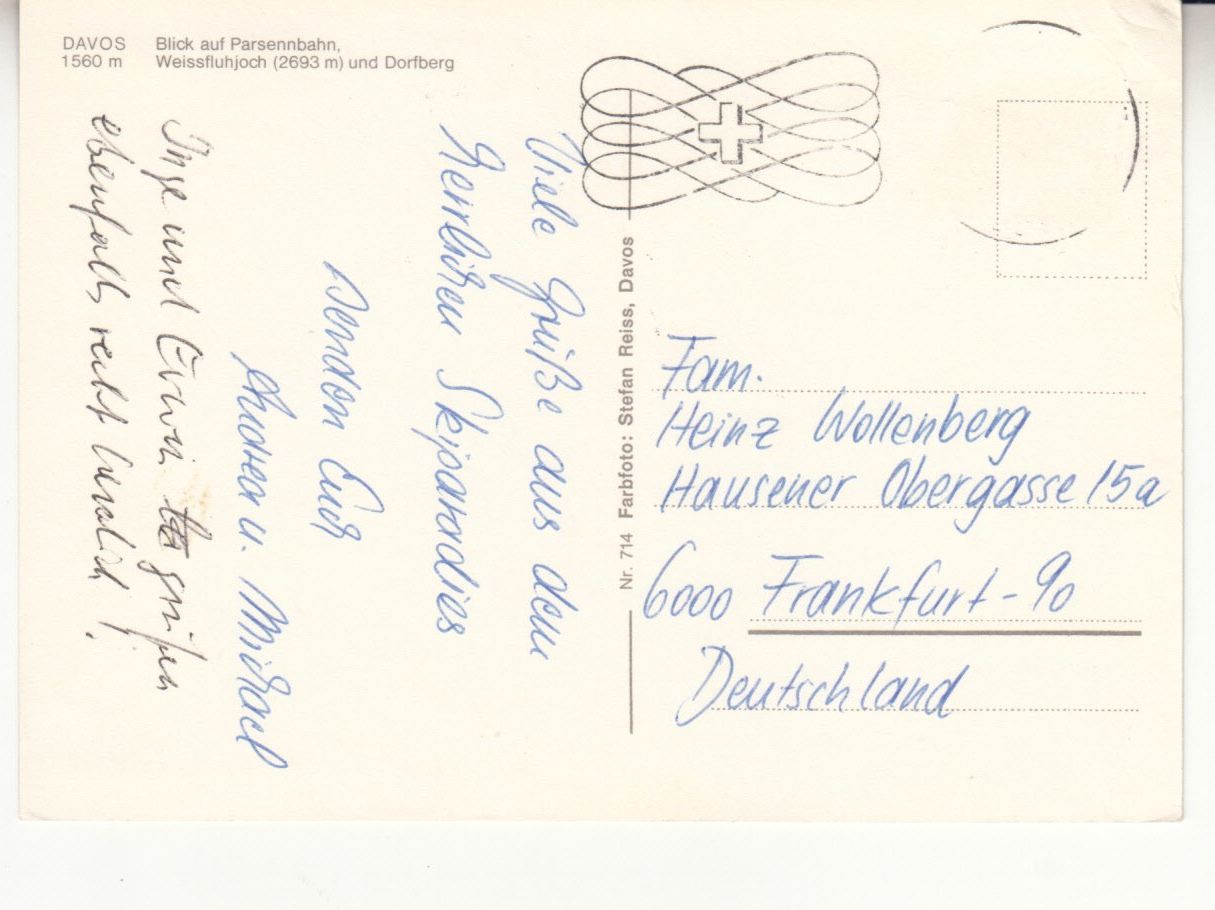 DAVOS Blick auf Parsennbahn,
1560 m Weissfluhjoch (2693 m) und Dorfberg
Viele Grüße aus dem
herrlichen Skiparadies
senden Euch
Andrea u. Michael
Inge und Erwin grüßen
ebenfalls recht herzlich!
Nr. 714 Farbfoto: Stefan Reiss, Davos
Fam.
Heinz Wollenberg
Hausener Obergasse 15a
6000 Frankfurt-90
Deutschland